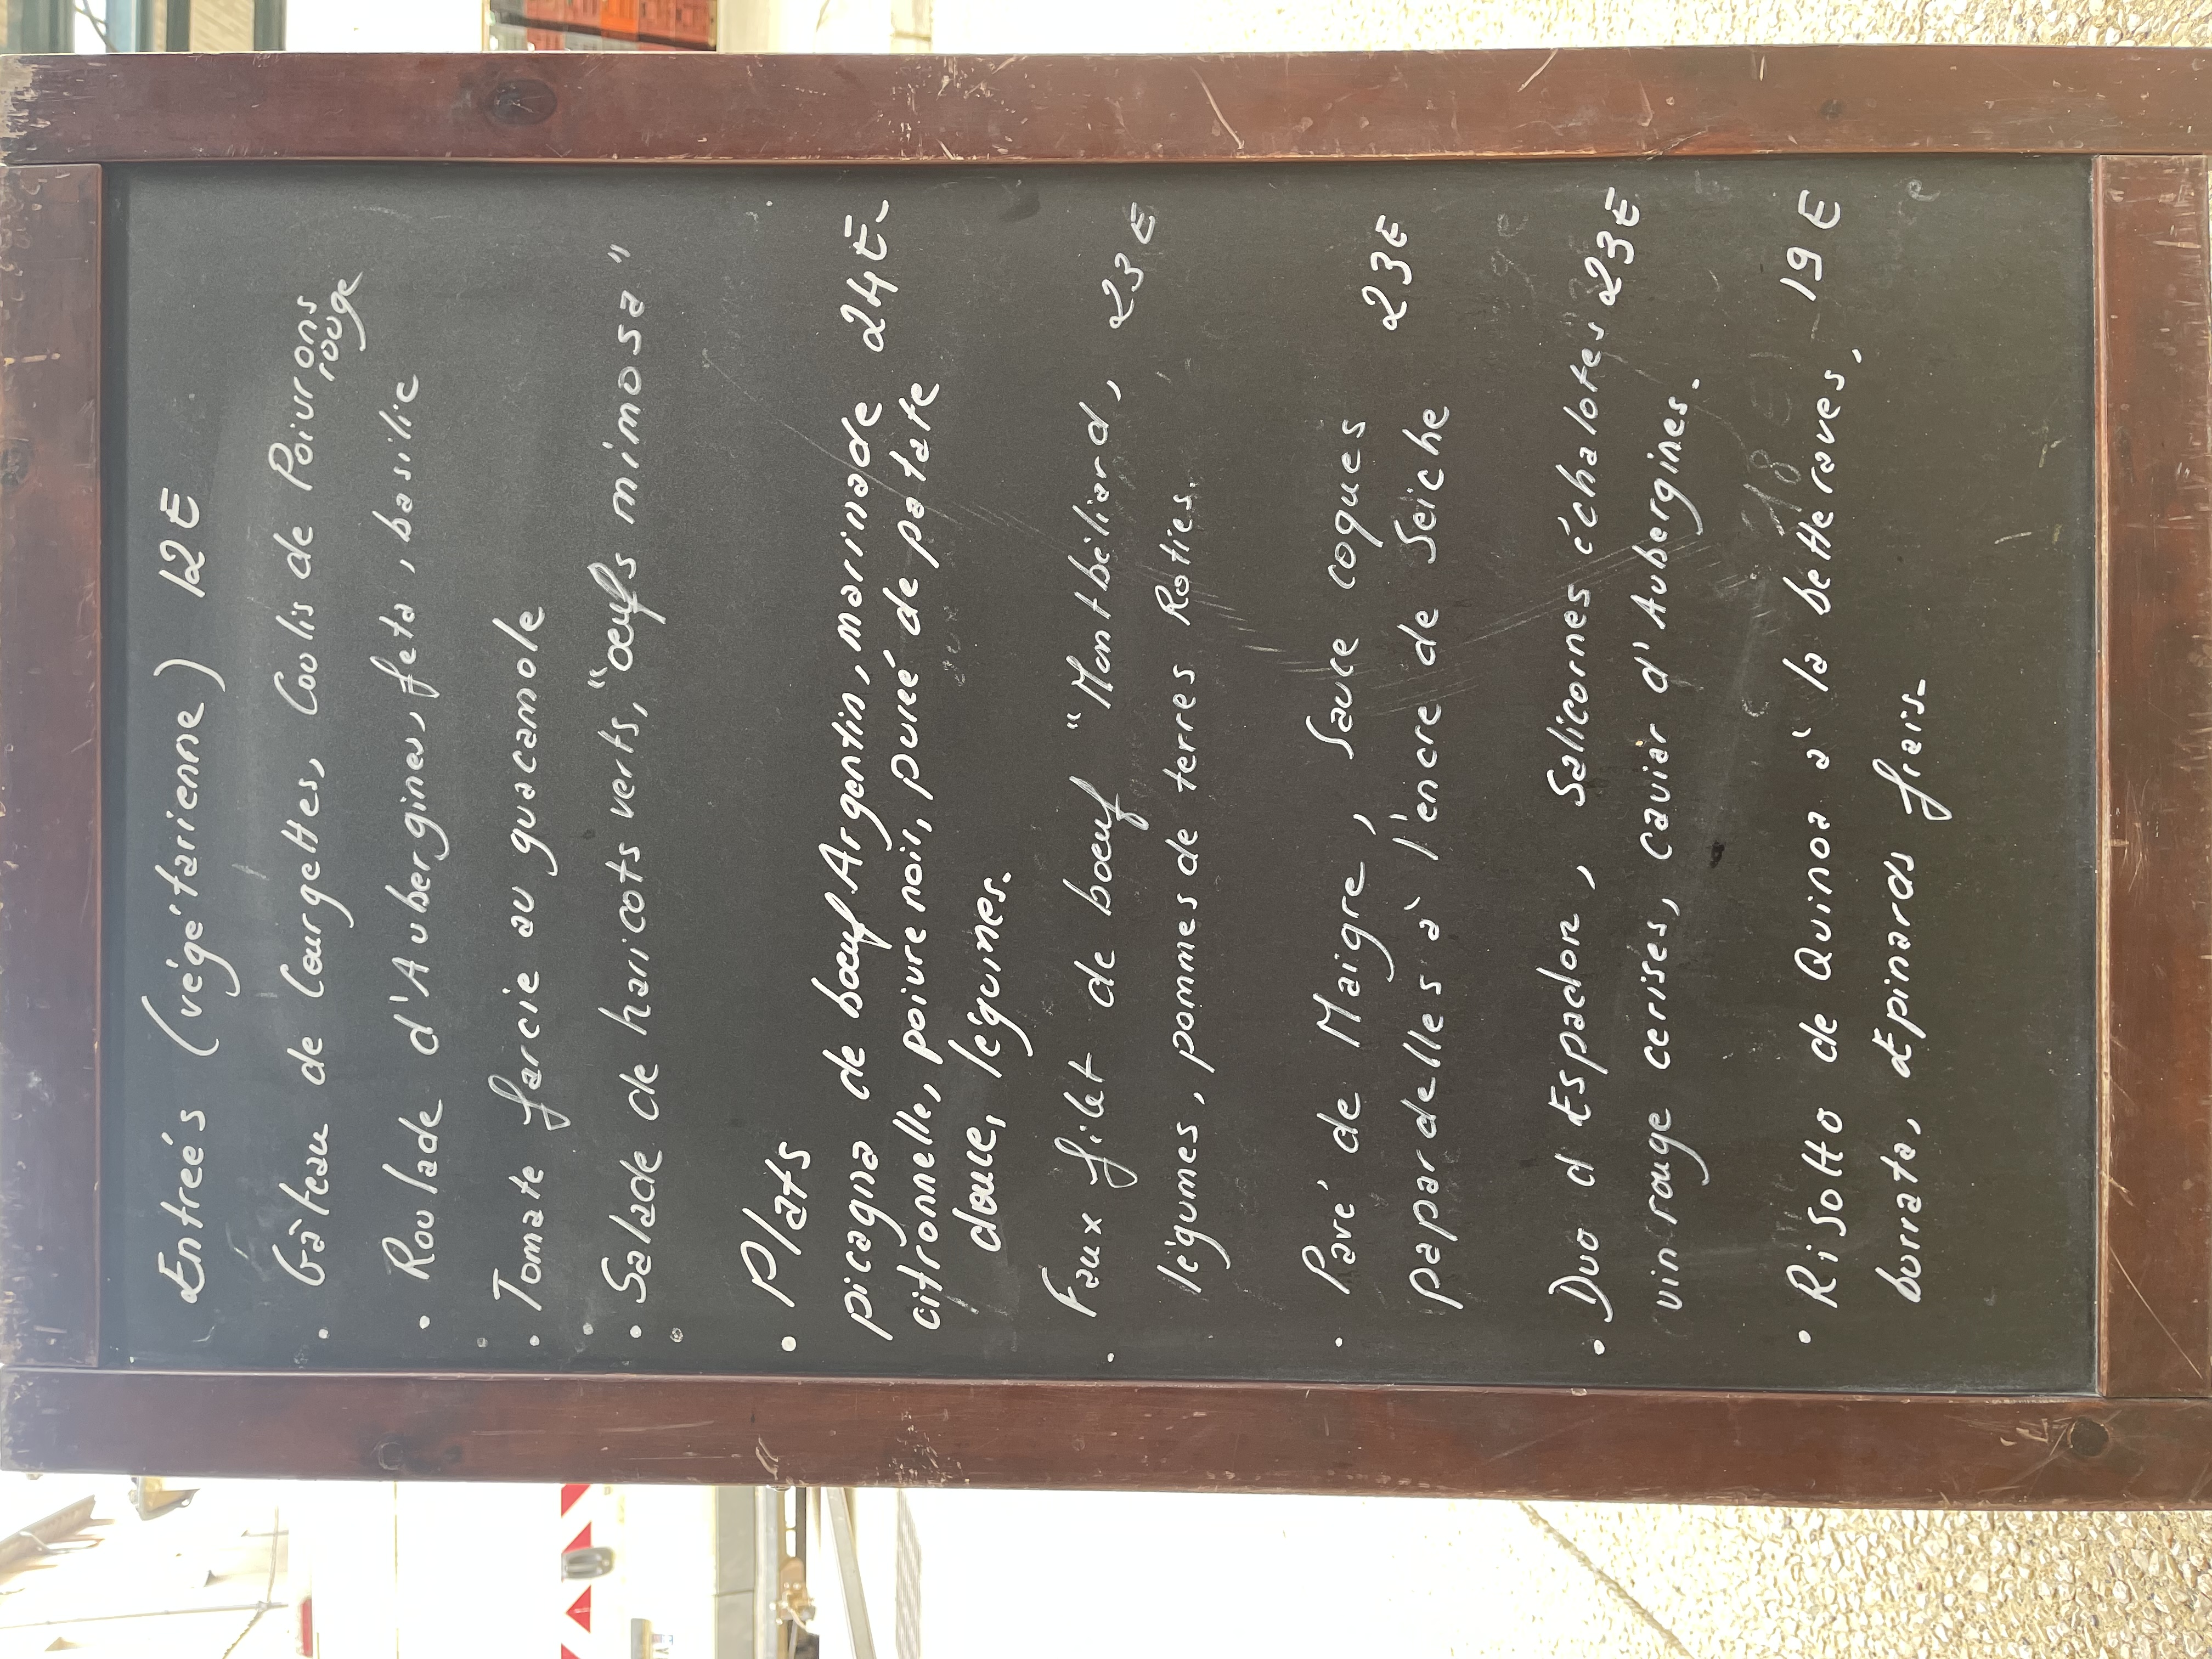 Entreés (végétarienne) 12E
• Gâteau de Courgettes, Coulis de Poivrons
rouge
• Roulade d'Aubergines, feta, basilic
• Tomate farcie au guacamole
• Salade de haricots verts, "œufs mimosa"
• Plats
picagna de bœuf Argentin, marinade 24E
citronnelle, poivre noir, pureé de patate
douce, légumes.
• Faux filet de bœuf "Montbéliard, 23E
légumes, pommes de terres Roties.
• Pavé de Maigre, Sauce coques 23E
papardelles à l'encre de Seiche
• Duo d Espadon, Salicornes échalotes 23E
vin rouge cerises, caviar d'Aubergines.
• Risotto de Quinoa à la betteraves, 19E
burrata, Epinards frais.